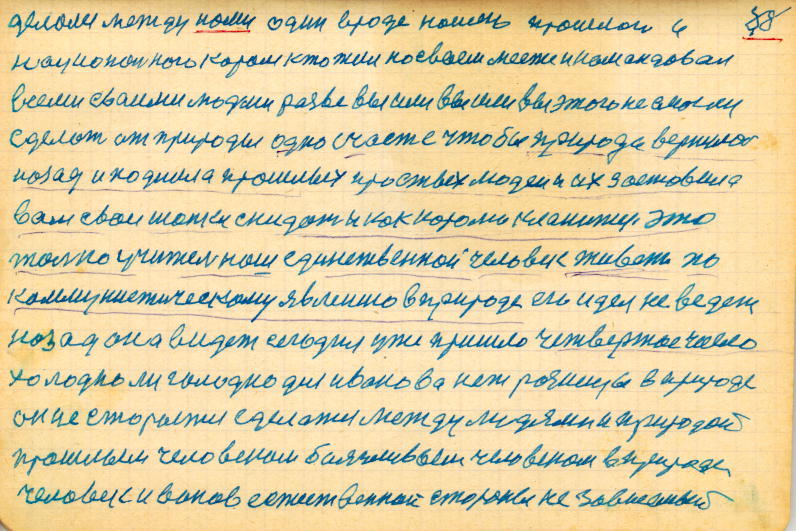 делали между нами один вроде наших прошлого и 58
национального кто жил по своем месте и командовал
всеми своими людми разве вы или вы или вы этого не смогли
сделат от природы одно счасте чтобы природа вернулас
назад и подняла прошлых простых людей и их заставила
вам свои шапки скидат и как королю кланятся это
толко учител наш единственной человек живет по
коммунистическому явлению в природе его идея не ведет
назад она видет сегодня уже пришло четвертое число
холодно ли голодно для иванова нет разницы в природе
он не сторался сделатся между людями и природой
прошлым человеком боязливым человеком в природе
человек иванов естественной стороны не зависимый